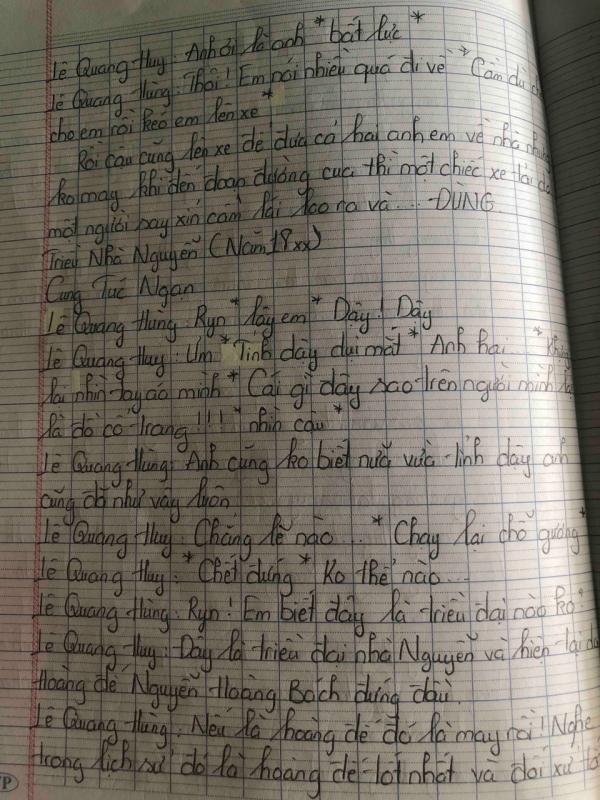 Lê Quang Huy: Anh ơi là anh *bất lực*
Lê Quang Hùng: Thôi! Em nói nhiều quá đi về *Cầm dù
cho em rồi kéo em lên xe*
Rồi cậu cũng lên xe để đưa cả hai anh em về nhà nhưng
ko may khi đến đoạn đường cua thì một chiếc xe tải do
một người say xỉn cầm lái lao ra và... ĐÙNG
Triều Nhà Nguyễn (Năm 18xx)
Cung Túc Ngạn
Lê Quang Hùng: Ryn *lây em* Dậy! Dậy
Lê Quang Huy: Um *Tỉnh dậy dụi mắt* Anh hai... *
lại nhìn tay áo mình* Cái gì đây sao trên người mình
là đồ cổ trang!!! *nhìn cậu*
Lê Quang Hùng: Anh cũng ko biết nữa vừa tỉnh dậy anh
cũng đã như vậy luôn
Lê Quang Huy: Chẳng lẽ nào... *Chạy lại chỗ gương*
Lê Quang Huy: *Chết đứng* Ko thể nào...
Lê Quang Hùng: Ryn! Em biết đây là triều đại nào ko?
Lê Quang Huy: Đây là triều đại nhà Nguyễn và hiện tại
Hoàng đế Nguyễn Hoàng Bách đứng đầu.
Lê Quang Hùng: Nếu là hoàng đế đó là may rồi! Nghe
trong lịch sử đó là hoàng đế tốt nhất và đối xử